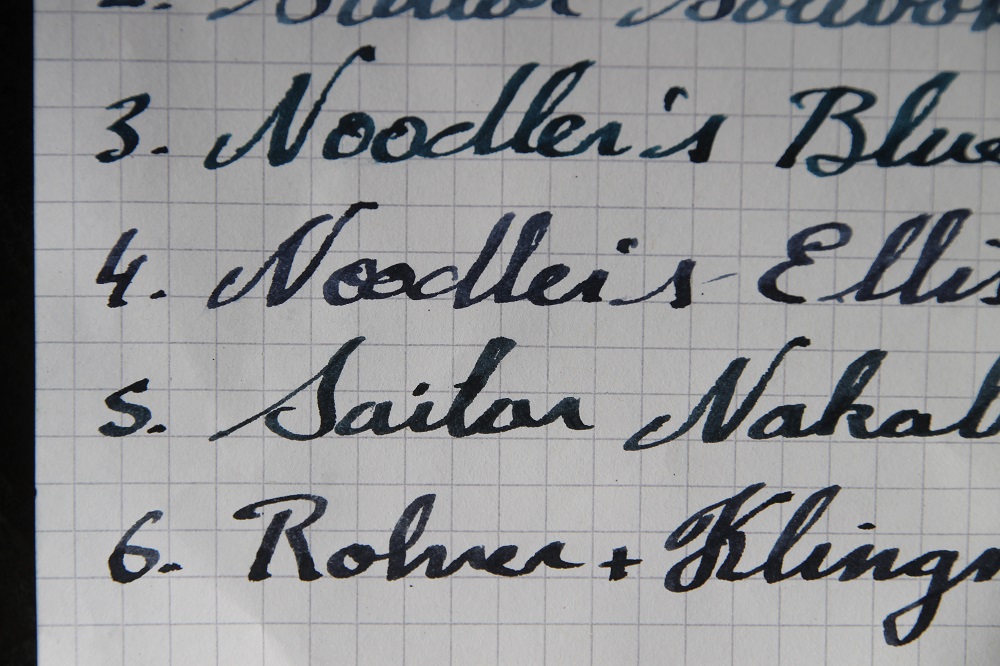 2. Sailor
3. Noodler's Blue
4. Noodler's Ellis
5. Sailor Nakab
6. Rohrer + Klingn